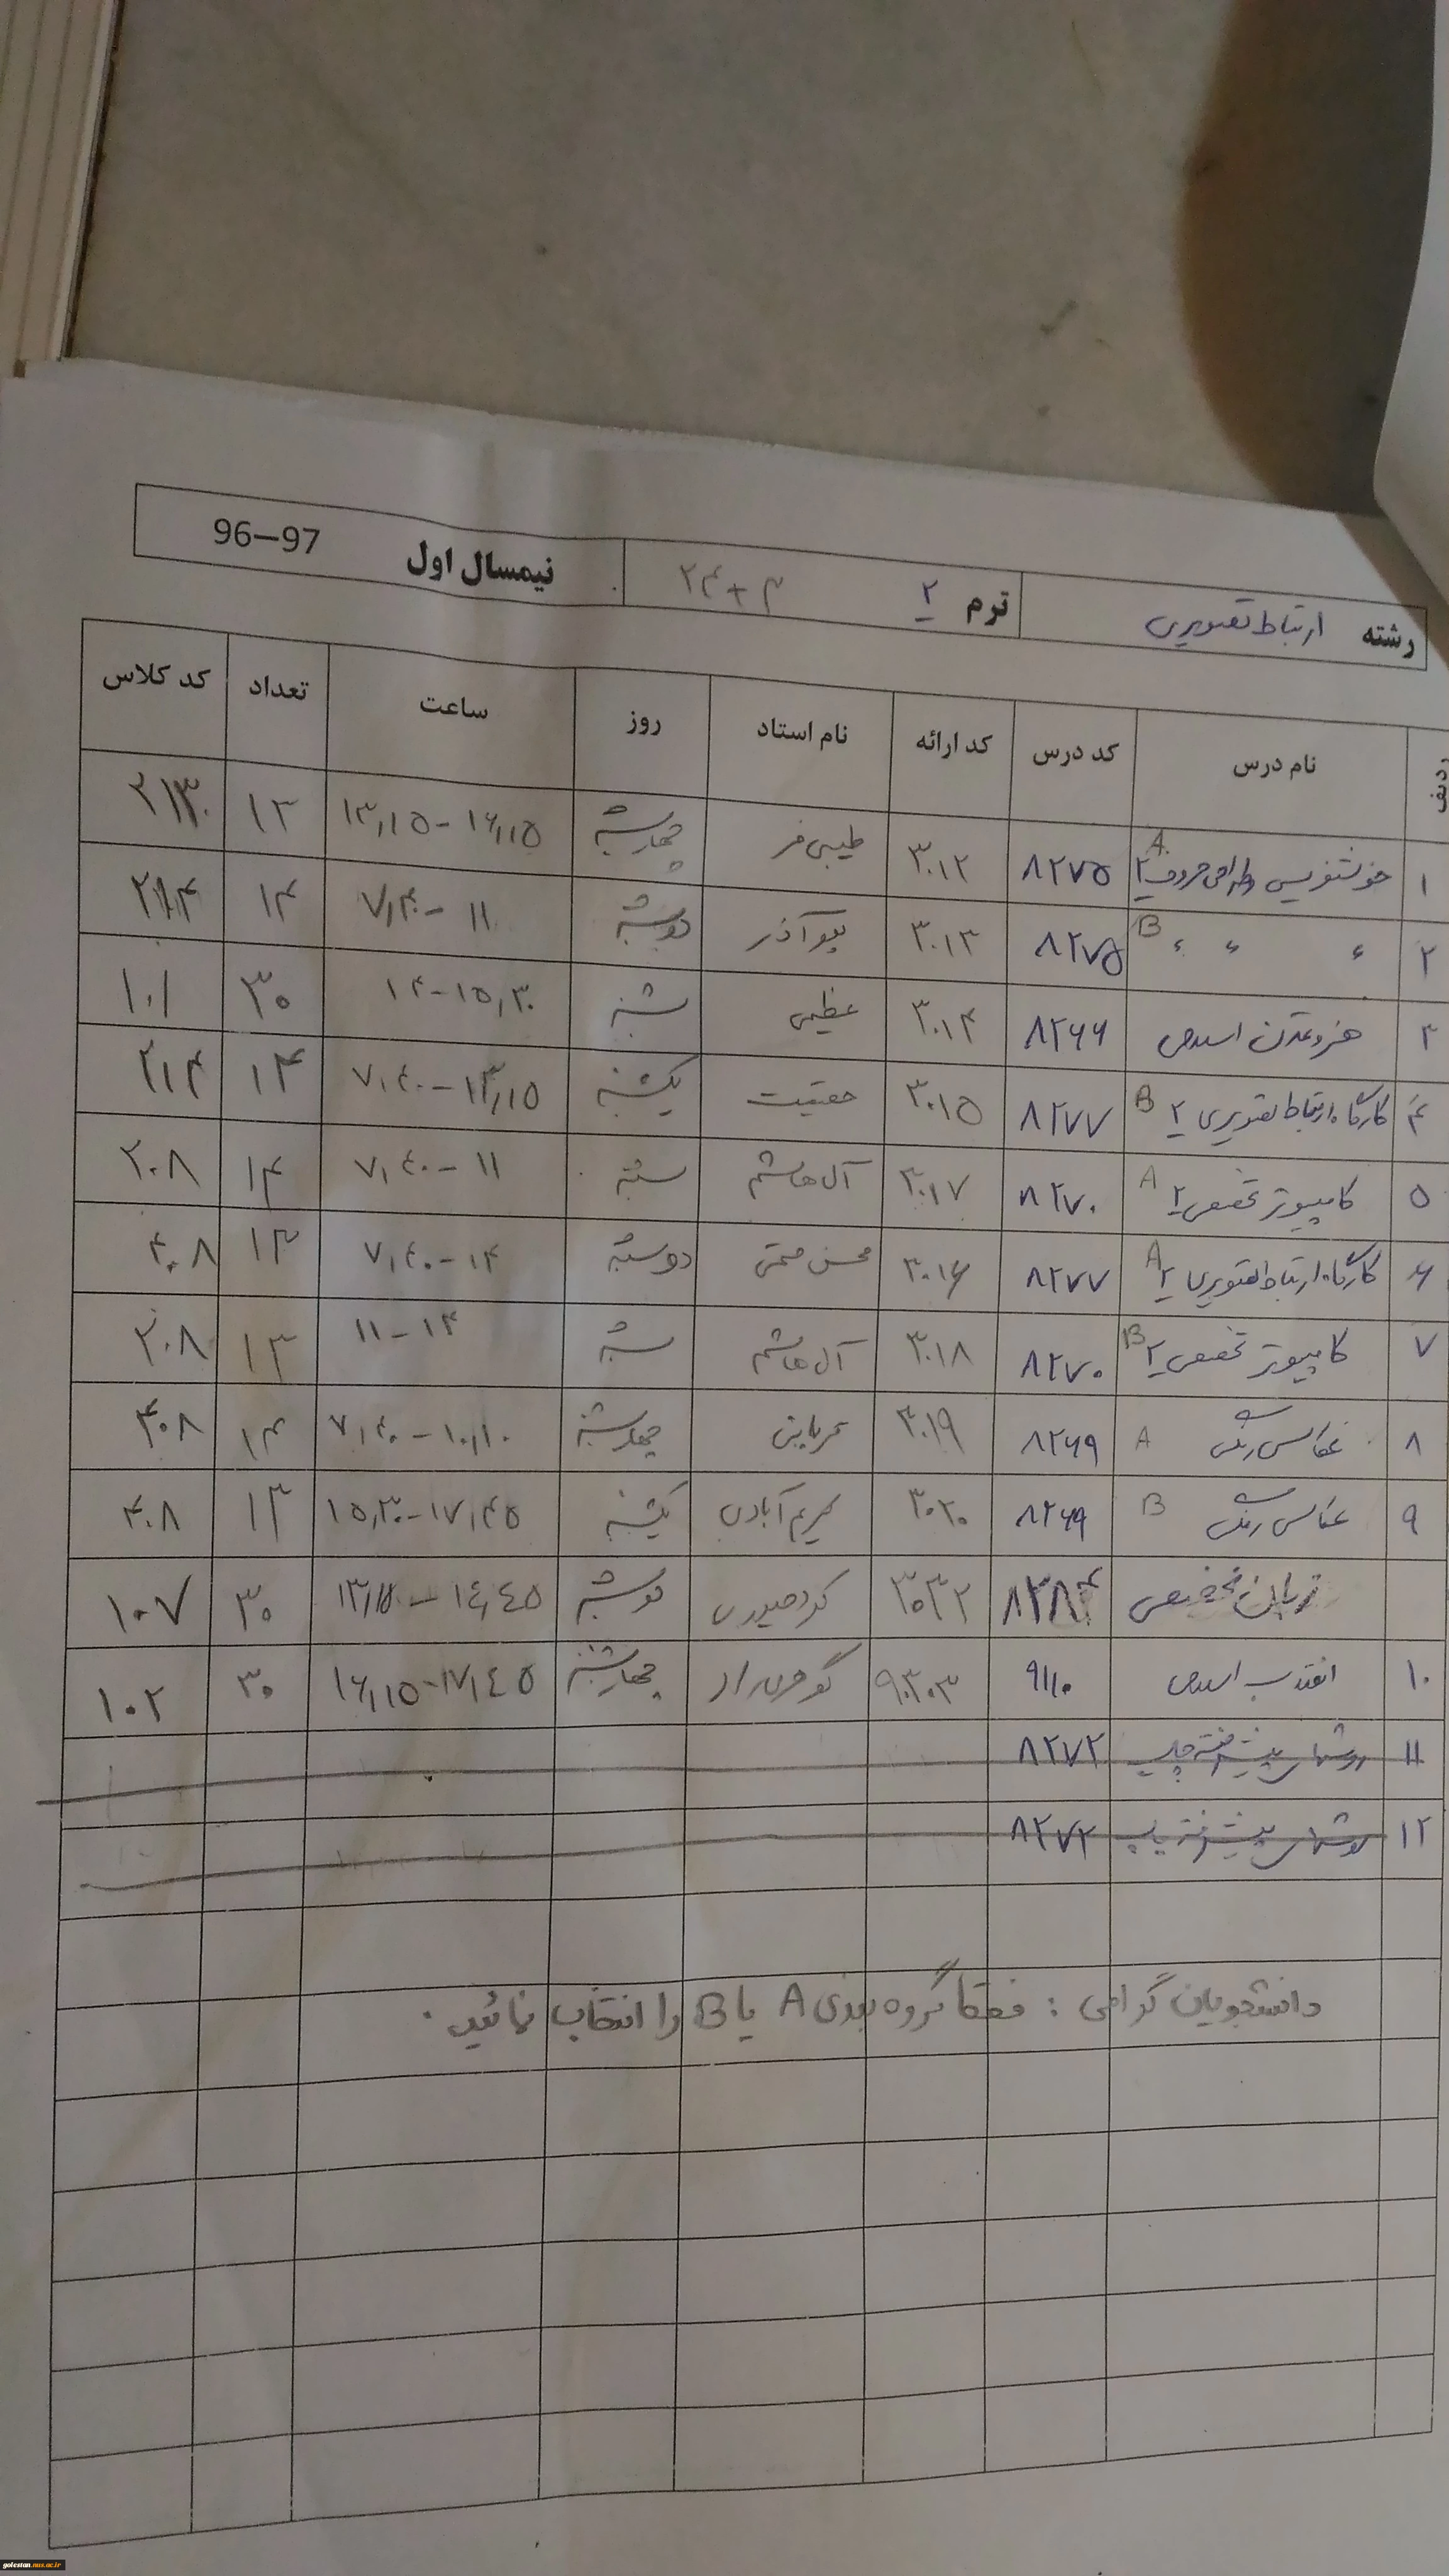 رشته ارتباط تصویری ترم ۲ ۲۴+۳ نیمسال اول 96-97
ردیف نام درس کد درس کد ارائه نام استاد روز ساعت تعداد کد کلاس
۱ خوشنویسی و طراحی حروف ۲ A ۸۲۷۵ ۳۰۱۲ طیبی فر چهارشنبه ۱۳,۱۵-۱۶,۱۵ ۱۳
۲ " " " B ۸۲۷۵ ۳۰۱۳ آذر دوشنبه ۷,۴۰-۱۱ ۱۴ ۲۱۴
۳ هنر و تمدن اسلامی ۸۲۶۶ ۳۰۱۴ عظیمی شنبه ۱۴-۱۵,۳۰ ۳۰ ۱۰۱
۴ کارگاه ارتباط تصویری ۲ B ۸۲۷۷ ۳۰۱۵ حقیقت یکشنبه ۷,۴۰-۱۳,۱۵ ۱۴ ۲۱۴
۵ کامپیوتر تخصصی ۲ A ۸۲۷۰ ۳۰۱۷ آل هاشم شنبه ۷,۴۰-۱۱ ۱۴ ۲۰۸
۶ کارگاه ارتباط تصویری ۲ A ۸۲۷۷ ۳۰۱۶ محسن دوشنبه ۷,۴۰-۱۴ ۱۳ ۴۰۸
۷ کامپیوتر تخصصی ۲ B ۸۲۷۰ ۳۰۱۸ آل هاشم شنبه ۱۱-۱۴ ۱۳ ۲۰۸
۸ عکاسی رنگی A ۸۲۶۹ ۳۰۱۹ چهارشنبه ۷,۴۰-۱۰,۱۰ ۱۴ ۴۰۸
۹ عکاسی رنگی B ۸۲۶۹ ۳۰۲۰ کریم آبادی یکشنبه ۱۵,۳۰-۱۷,۴۵ ۱۳ ۴۰۸
زبان تخصصی ۳۰۳۲ کردحیدری دوشنبه ۱۴,۴۵ ۳۰ ۱۰۷
۱۰ انقلاب اسلامی ۹۱۱۰ ۹۰۳۰۳ گوهری راد چهارشنبه ۱۶,۱۵-۱۷,۴۵ ۳۰ ۱۰۲
۱۱ روشهای پیشرفته چاپ ۸۲۷۲
۱۲ روشهای پیشرفته چاپ ۸۲۷۲
دانشجویان گرامی : فقط گروه بندی A یا B را انتخاب نمائید.
golestan.nus.ac.ir